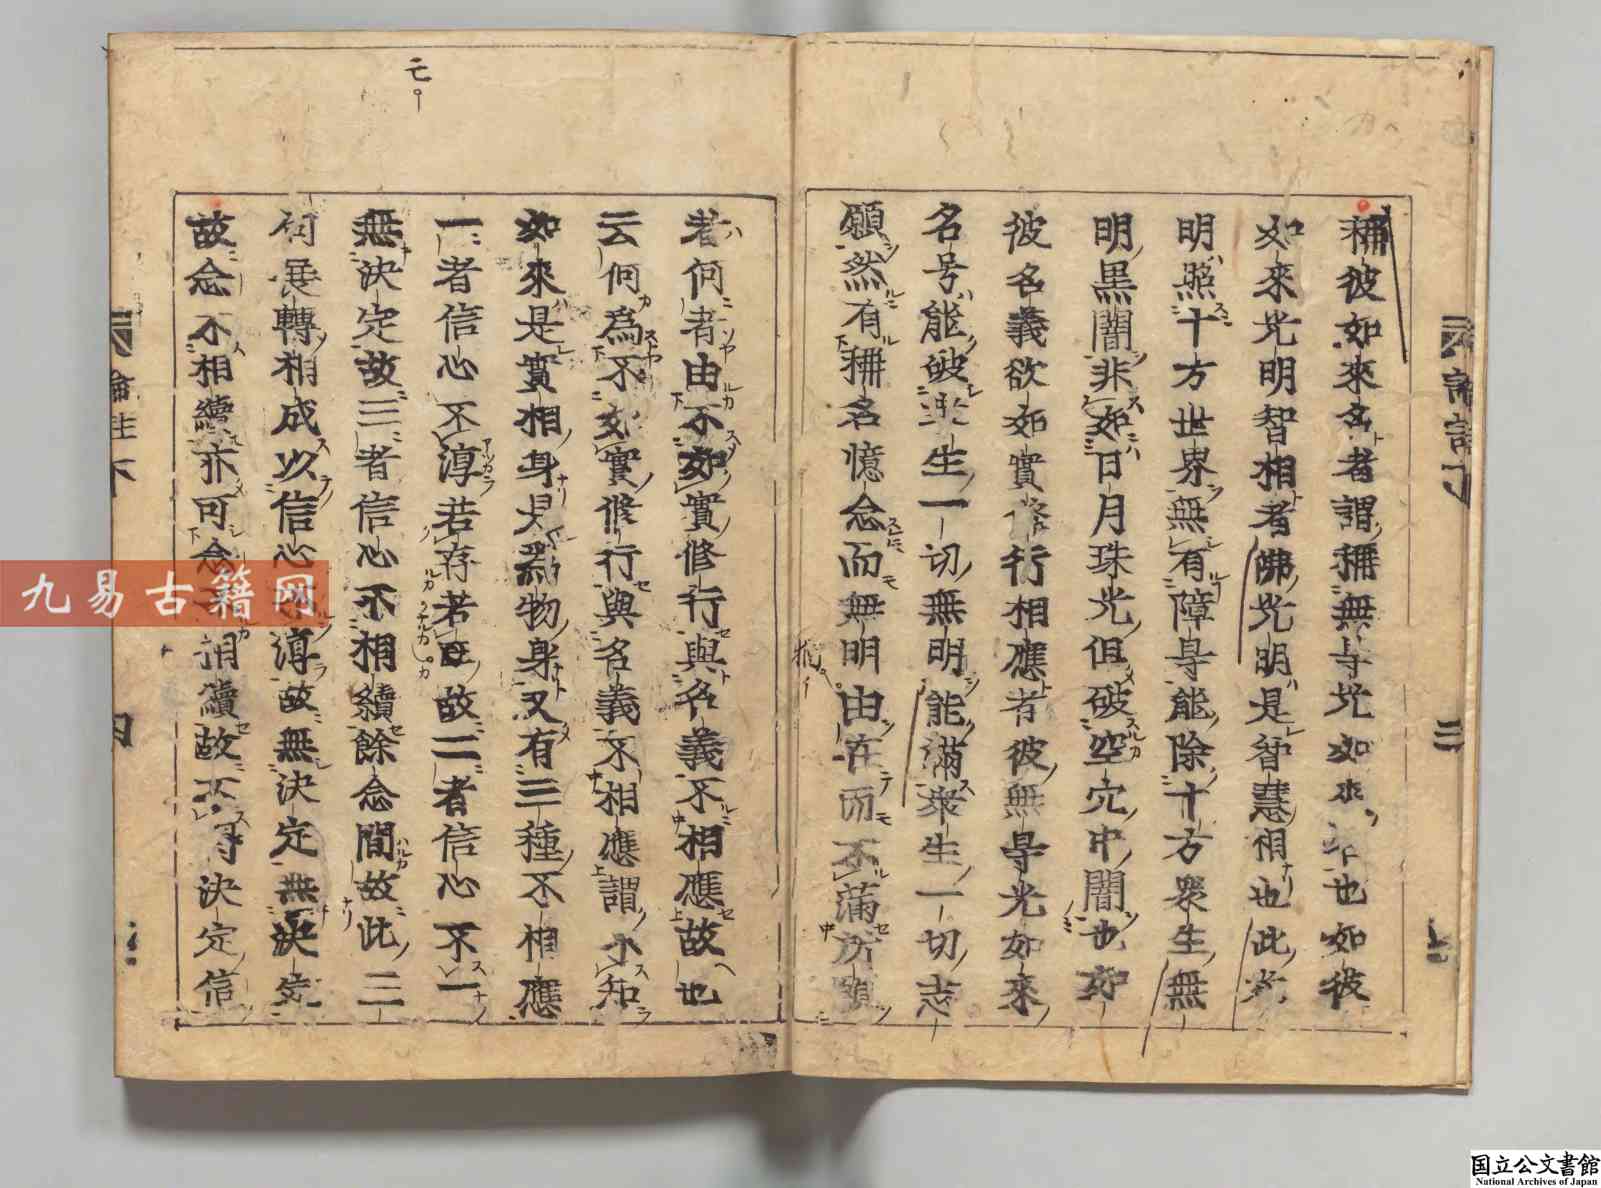 稱彼如來名者謂稱無㝵光如來名也如彼
如來光明智相者佛光明是智慧相也此光
明照十方世界無有障㝵能除十方衆生無
明黒闇非如日月珠光但破空穴中闇也如
彼名義欲如實修行相應者彼無㝵光如來
名号能破衆生一切無明能滿衆生一切志
願然有稱名憶念而無明由在而不滿所願
者何者由不如實修行與名義不相應故也
云何為不如實修行與名義不相應謂不知
如來是實相身是為物身又有三種不相應
一者信心不淳若存若亡故二者信心不一
無決定故三者信心不相續餘念間故此三
句展轉相成以信心不淳故無決定無決定
故念不相續亦可念不相續故不得決定信
論註下
三
論註下
四
九易古籍网
国立公文書館
National Archives of Japan